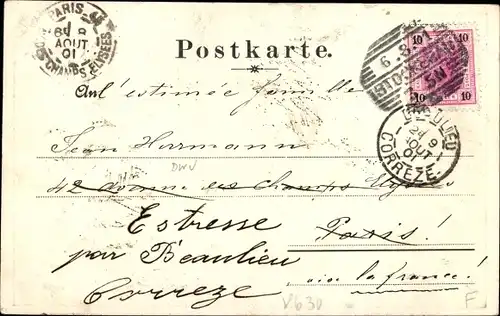 PARIS
8 E 9
AOUT
01
CHAMPS ELYSEES
Postkarte.
10 10
10 10
6.8.01
BEAULIEU
9
AOUT
01
CORREZE
A l'estimée famille
Jean Herrmann
DWV
42 avenue des Champs Elysées
Estresse
Paris!
par Beaulieu
vive la france!
Correze
V630
F